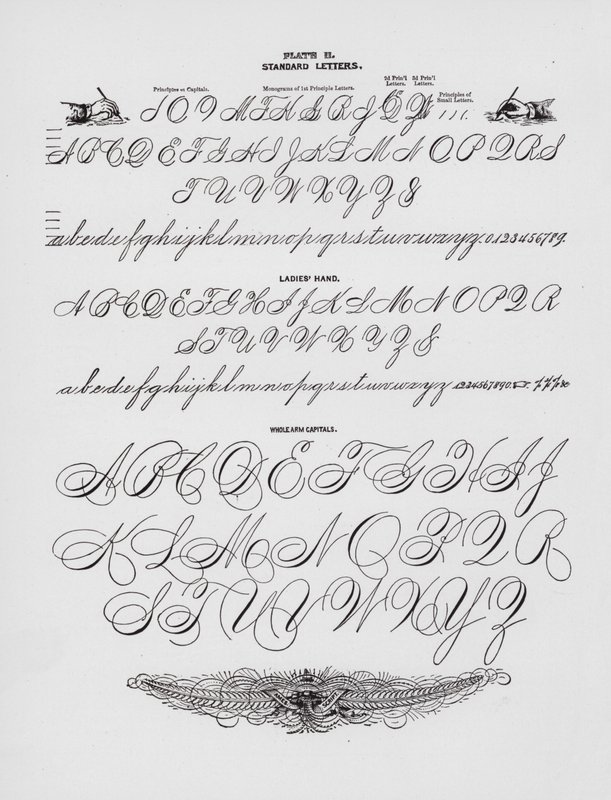 PLATE II.
STANDARD LETTERS.
2d Prin'l Letters. 3d Prin'l Letters.
Principles of Capitals. Monograms of 1st Principle Letters. Principles of Small Letters.
A B C D E F G H I J K L M N O P Q R S
T U V W X Y Z &
a b c d e f g h i j k l m n o p q r s t u v w x y z. 0.1 2 3 4 5 6 7 8 9.
LADIES' HAND.
A B C D E F G H I J K L M N O P Q R
S T U V W X Y Z &
a b c d e f g h i j k l m n o p q r s t u v w x y z 1 2 3 4 5 6 7 8 9 0.
WHOLE ARM CAPITALS.
A B C D E F G H I J
K L M N O P Q R
S T U V W X Y Z